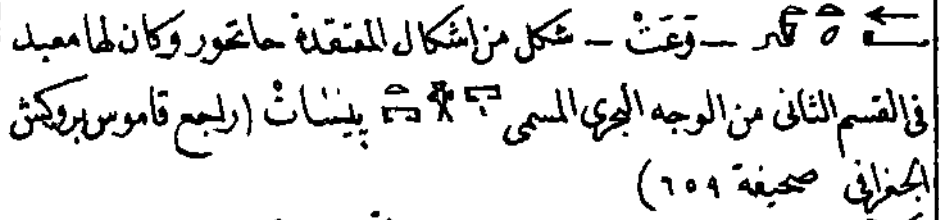 – وَعَتْ – شكل من اشكال المعتقدة حاتحور وكان لها معبد
فى القسم الثانى من الوجه البحرى المسمى پينسَاتْ (راجع قاموس بروكش
الجغرافى صحيفة ٦٥٩)